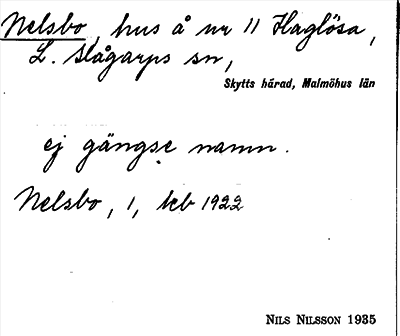 Nelsbo, hus å nr 11 Haglösa,
L. Slågarps sn,
Skytts härad, Malmöhus län
ej gängse namn.
Nelsbo, 1, teb 1922
NILS NILSSON 1935